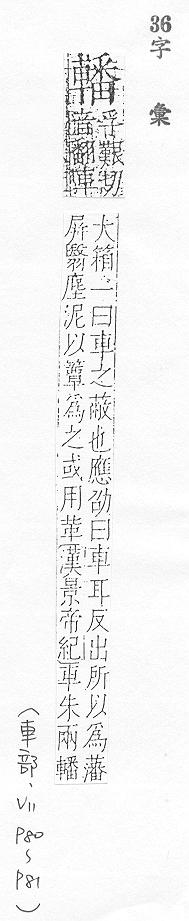 36
字彙
轓
孚艱切
音翻車
大箱一曰車之蔽也應劭曰車耳反出所以為藩
屏翳塵泥以簟為之或用革漢景帝紀車朱兩轓
(車部、VII P80~P81)